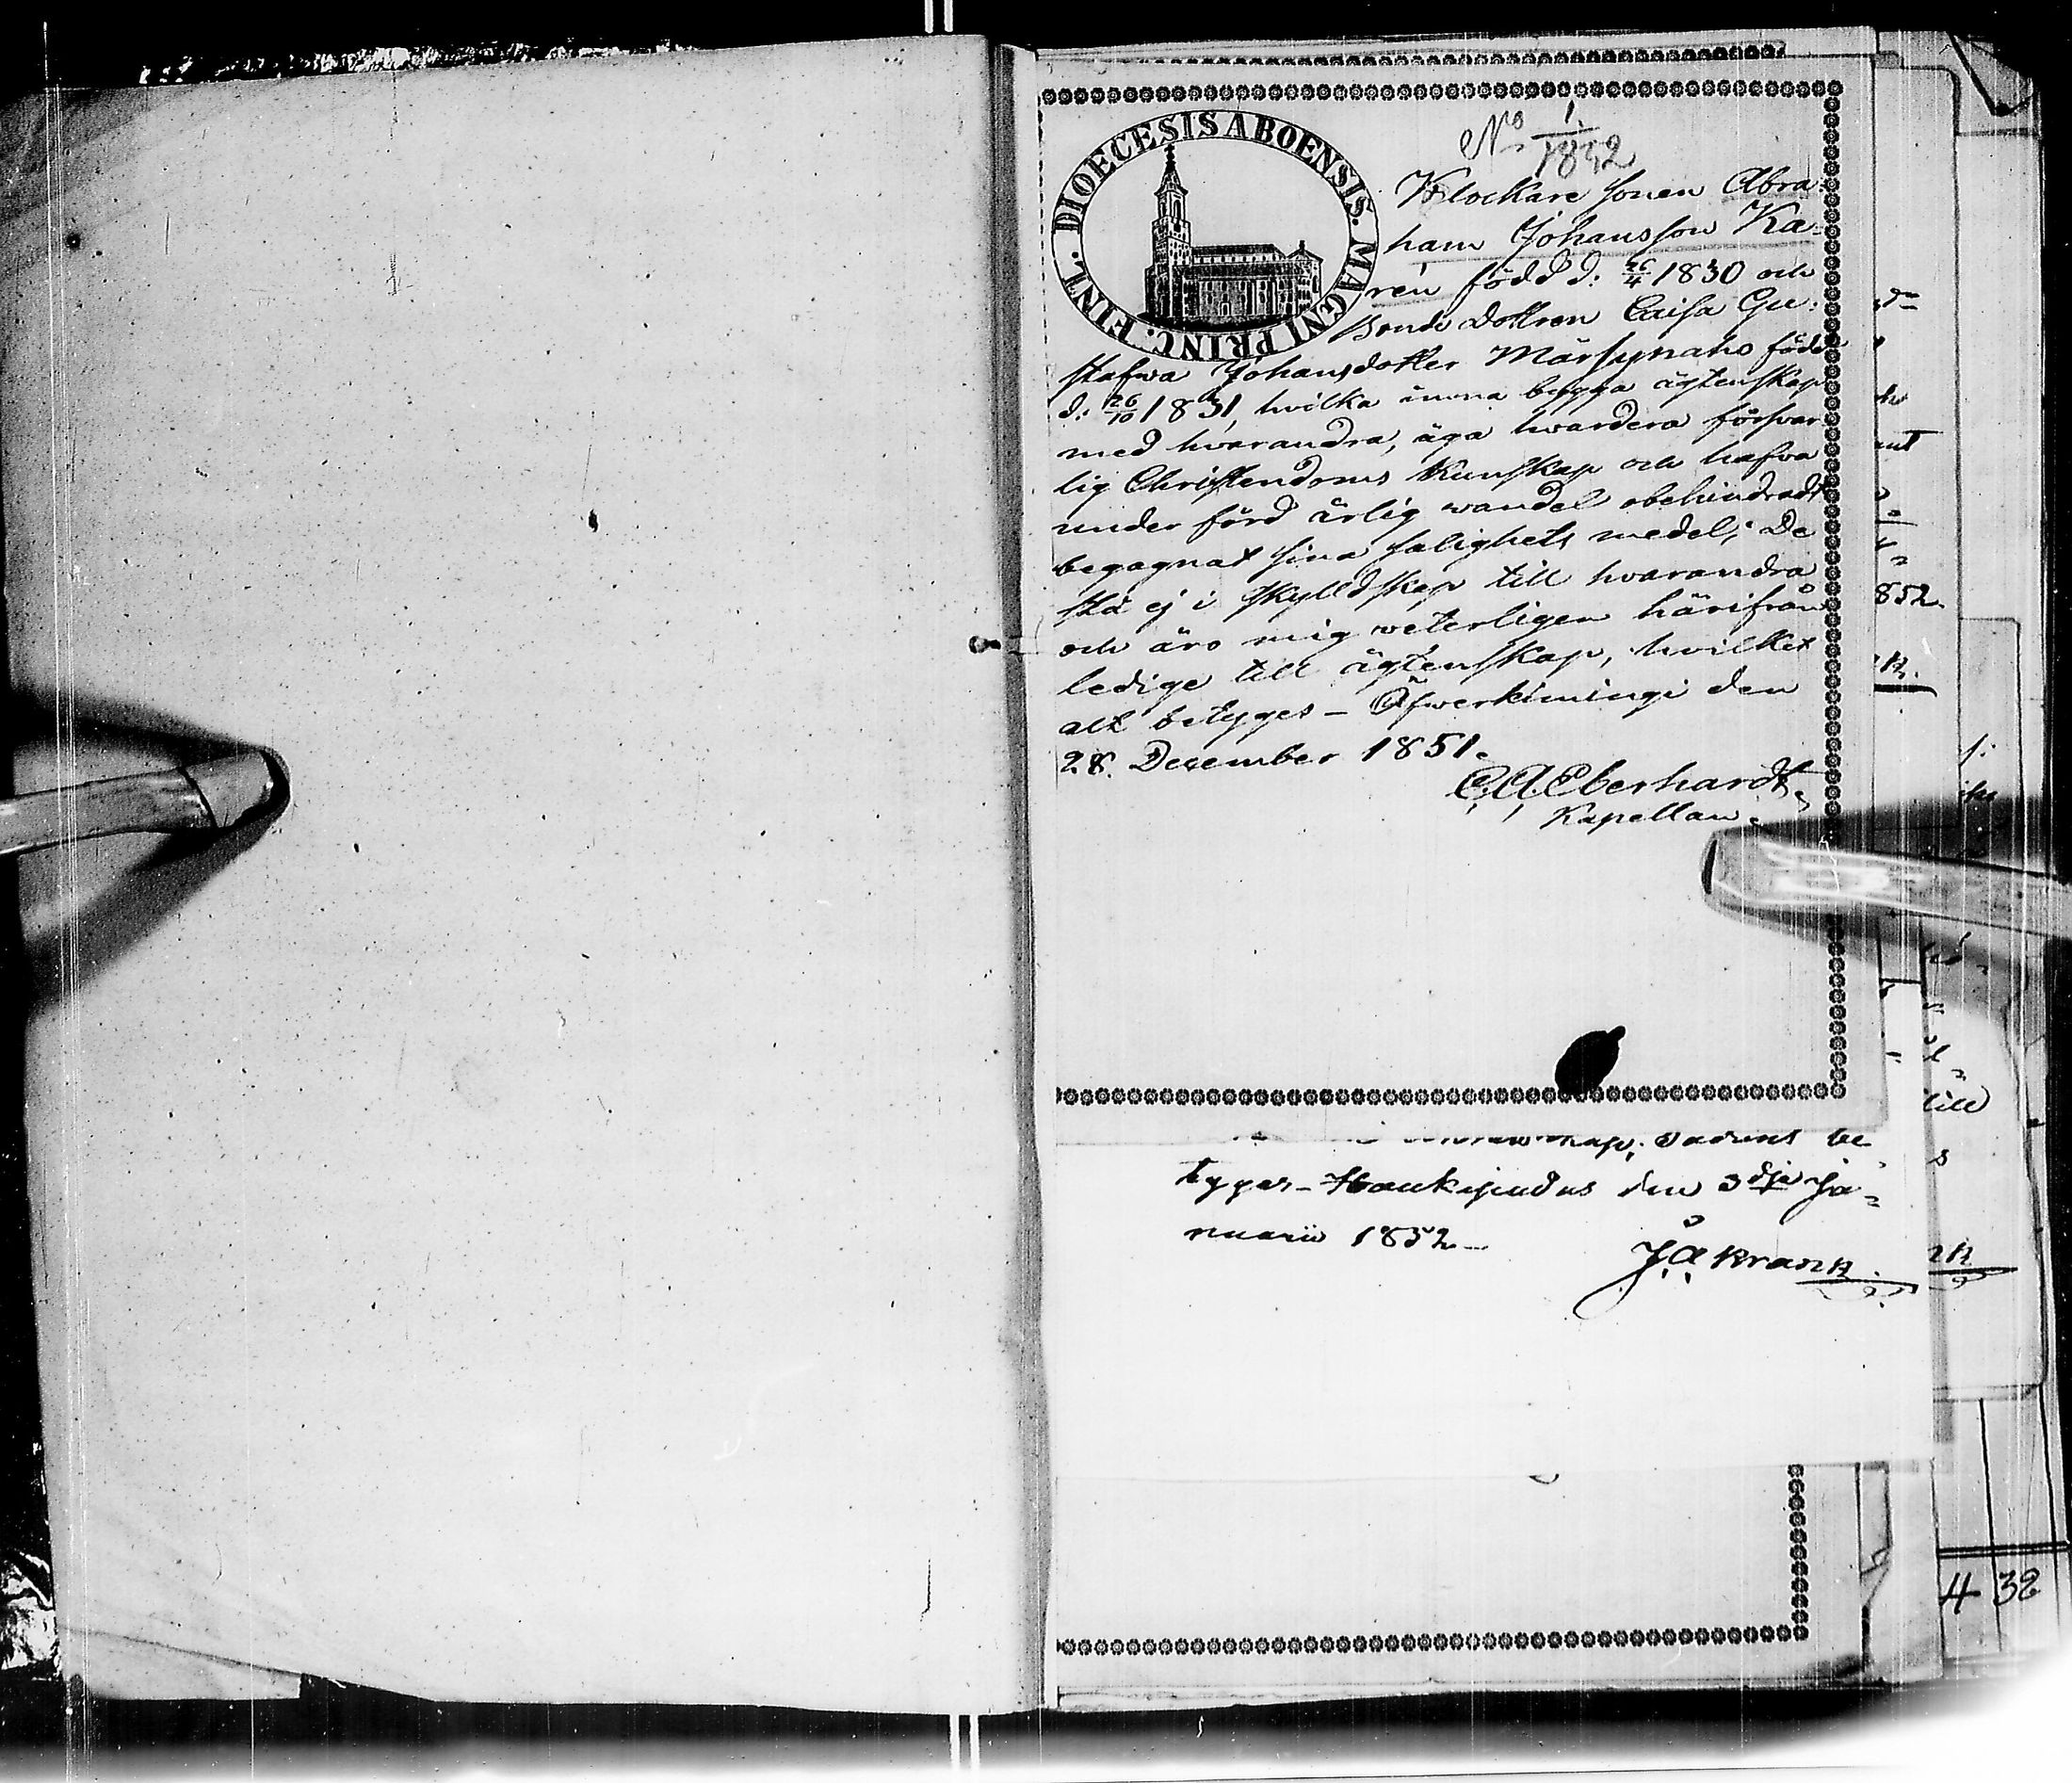 DIOECESIS ABOENSIS. MAGNI PRINC. FINL.
No 1/1852
Klockare sonen Abra-
ham Johansson Ka-
rén född d: 26/4 1830 och
Bonde dottren Caisa Gu-
stafva Johansdotter Märsynaho född
d: 26/10 1831, hvilka ämna bygga ägtenskap
med hvarandra, äga hvardera försvar-
lig Christendoms kunskap och hafva
under förd ärlig wandel obehindradt
begagnat sina salighets medel; De
stå ej i skylldskap till hvarandra
och äro mig veterligen härifrån
ledige till ägtenskap, hvilket
allt betyges – Öfwerkiimingi den
28. December 1851.
C. A. Eberhardt.
Kapellan.
be-
tygas – Haukipudas den 3dje Ja-
nuarii 1852 –
J. A. Krank.
852.
till
4 32